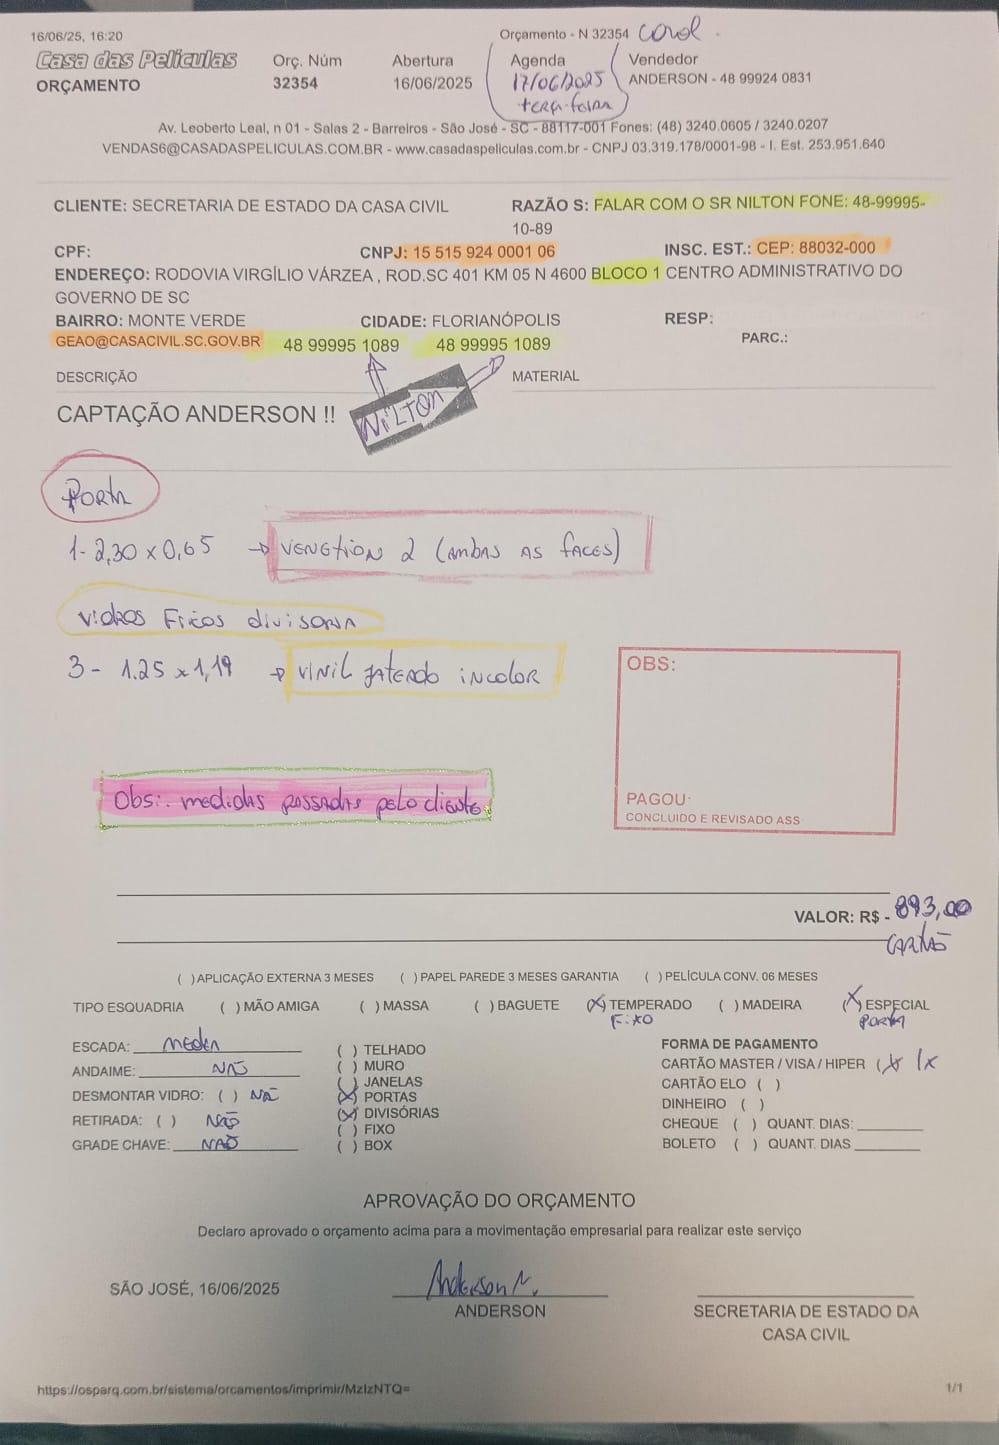 16/06/25, 16:20
Orçamento - N 32354
Casa das Películas
ORÇAMENTO
Orç. Núm
32354
Abertura
16/06/2025
Agenda
17/06/2025
terça-feira
Vendedor
ANDERSON - 48 99924 0831
Av. Leoberto Leal, n 01 - Salas 2 - Barreiros - São José - SC - 88117-001 Fones: (48) 3240.0605 / 3240.0207
VENDAS6@CASADASPELICULAS.COM.BR - www.casadaspeliculas.com.br - CNPJ 03.319.178/0001-98 - I. Est. 253.951.640
CLIENTE: SECRETARIA DE ESTADO DA CASA CIVIL
RAZÃO S: FALAR COM O SR NILTON FONE: 48-99995-
10-89
CPF:
CNPJ: 15 515 924 0001 06
INSC. EST.: CEP: 88032-000
ENDEREÇO: RODOVIA VIRGÍLIO VÁRZEA , ROD.SC 401 KM 05 N 4600 BLOCO 1 CENTRO ADMINISTRATIVO DO
GOVERNO DE SC
BAIRRO: MONTE VERDE
CIDADE: FLORIANÓPOLIS
RESP:
GEAO@CASACIVIL.SC.GOV.BR
48 99995 1089
48 99995 1089
PARC.:
DESCRIÇÃO
MATERIAL
CAPTAÇÃO ANDERSON !!
NILTON
PORTA
1- 2,30 x 0,65 → VENETION 2 (AMBAS AS FACES)
VIDROS FIXOS DIVISORIA
3 - 1.25 x 1,19 → VINIL JATEADO INCOLOR
OBS:
Obs:. medidas passadas pelo cliente
PAGOU:
CONCLUIDO E REVISADO ASS
VALOR: R$ - 893,00
CARTÃO
( ) APLICAÇÃO EXTERNA 3 MESES ( ) PAPEL PAREDE 3 MESES GARANTIA ( ) PELÍCULA CONV. 06 MESES
TIPO ESQUADRIA ( ) MÃO AMIGA ( ) MASSA ( ) BAGUETE (X) TEMPERADO ( ) MADEIRA (X) ESPECIAL
FIXO
PORTA
ESCADA: MEDIA
ANDAIME: NÃO
DESMONTAR VIDRO: ( ) NÃO
RETIRADA: ( ) NÃO
GRADE CHAVE: NÃO
( ) TELHADO
( ) MURO
( ) JANELAS
(X) PORTAS
(X) DIVISÓRIAS
( ) FIXO
( ) BOX
FORMA DE PAGAMENTO
CARTÃO MASTER / VISA / HIPER (X) 1x
CARTÃO ELO ( )
DINHEIRO ( )
CHEQUE ( ) QUANT. DIAS:
BOLETO ( ) QUANT. DIAS
APROVAÇÃO DO ORÇAMENTO
Declaro aprovado o orçamento acima para a movimentação empresarial para realizar este serviço
SÃO JOSÉ, 16/06/2025
Anderson N.
ANDERSON
SECRETARIA DE ESTADO DA
CASA CIVIL
https://osparq.com.br/sistema/orcamentos/imprimir/MzIzNTQ=
1/1